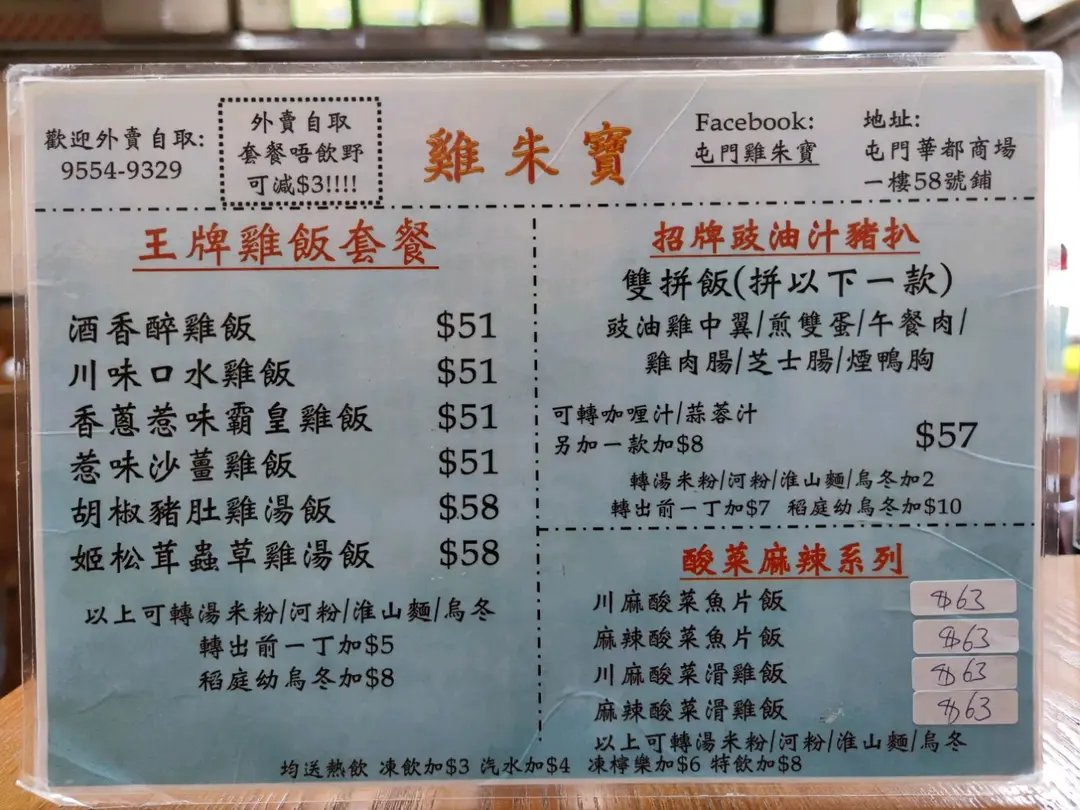 歡迎外賣自取:
9554-9329
外賣自取
套餐唔飲野
可減$3!!!!
雞朱寶
Facebook:
屯門雞朱寶
地址:
屯門華都商場
一樓58號鋪
王牌雞飯套餐
酒香醉雞飯 $51
川味口水雞飯 $51
香蔥惹味霸皇雞飯 $51
惹味沙薑雞飯 $51
胡椒豬肚雞湯飯 $58
姬松茸蟲草雞湯飯 $58
以上可轉湯米粉/河粉/淮山麵/烏冬
轉出前一丁加$5
稻庭幼烏冬加$8
招牌豉油汁豬扒
雙拼飯(拼以下一款)
豉油雞中翼/煎雙蛋/午餐肉/
雞肉腸/芝士腸/煙鴨胸
可轉咖喱汁/蒜蓉汁
另加一款加$8
$57
轉湯米粉/河粉/淮山麵/烏冬加2
轉出前一丁加$7 稻庭幼烏冬加$10
酸菜麻辣系列
川麻酸菜魚片飯 $63
麻辣酸菜魚片飯 $63
川麻酸菜滑雞飯 $63
麻辣酸菜滑雞飯 $63
以上可轉湯米粉/河粉/淮山麵/烏冬
均送熱飲 凍飲加$3 汽水加$4 凍檸樂加$6 特飲加$8